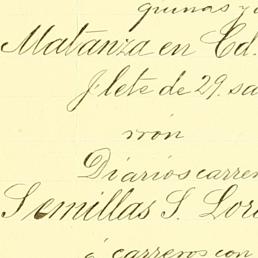 quinas y
Matanza en Cd.
Flete de 29. sa
rrón
Diarios carre
Semillas S. Lor
á carreros con